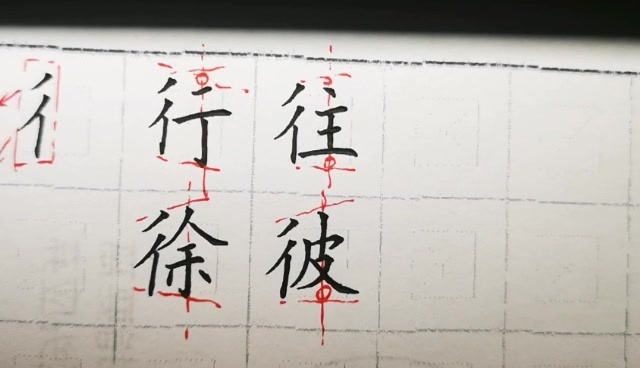 彳行往
徐彼